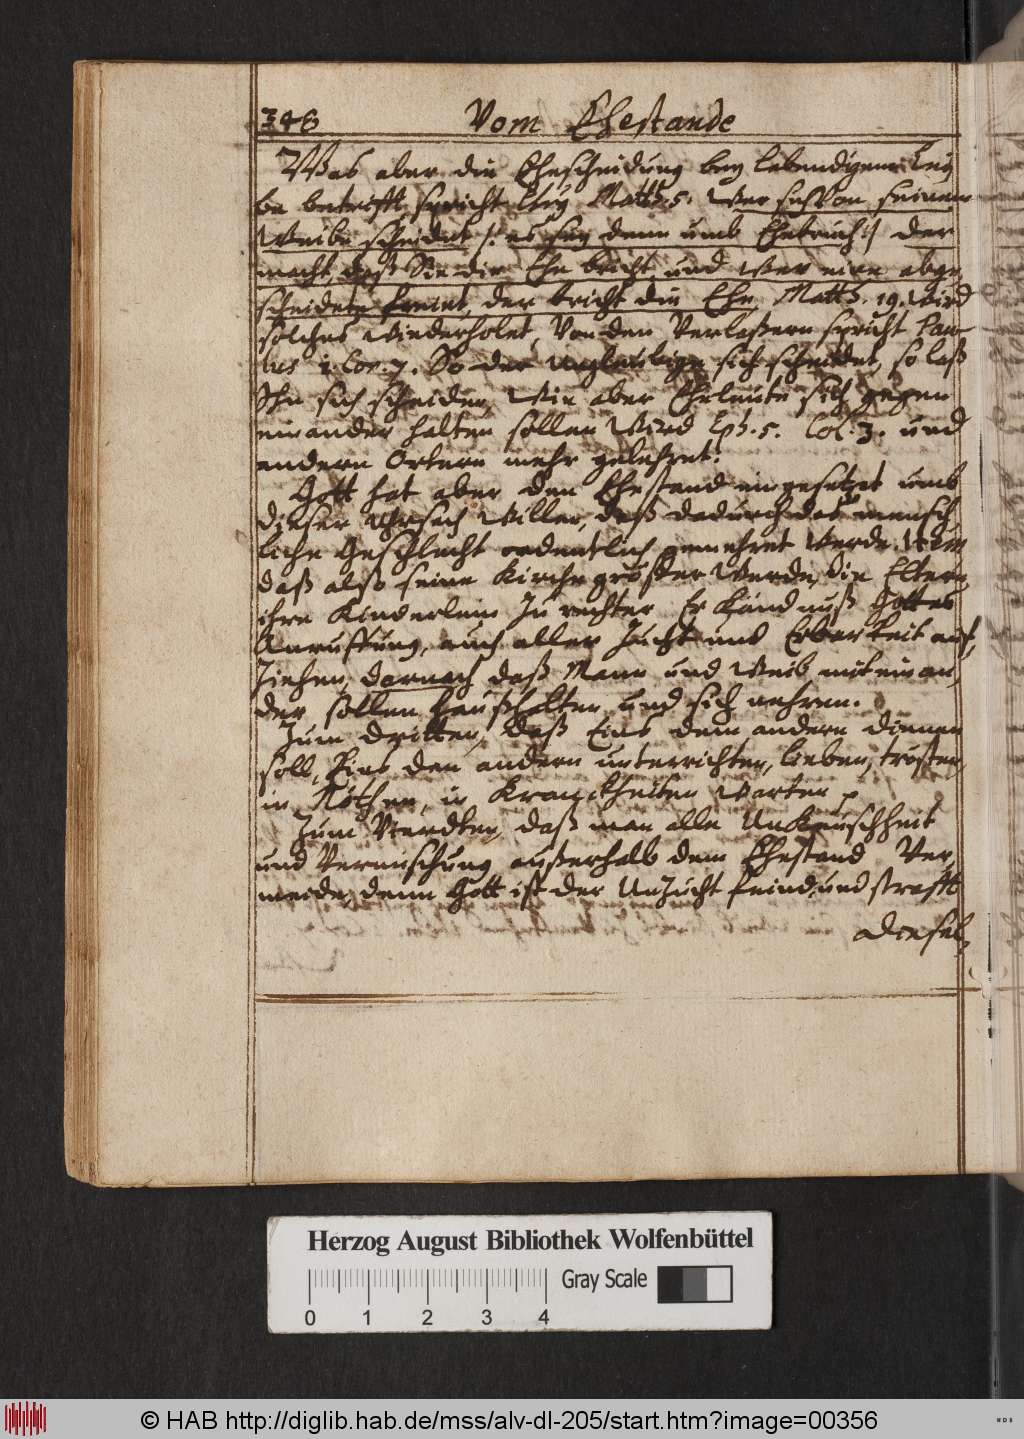 348 Vom Ehestande
Was aber die Ehescheidung bey lebendigem Lei
be betrifft spricht Chr9 Matth. 5. Wer sich Von seinem
Weibe scheidet /: es sey denn umb Ehebruch :/ der
macht, daß Sie die Ehe bricht und Wer eine abge,
scheidete freiet, der bricht die Ehe Matth. 19. Wird
solches Wiederholet, Von den Verlaßern spricht Pau-
lus 1. Cor. 7. So der ungleubige sich scheidet, so laß
Ihn sich scheiden, Wie aber Eheleute sich gegen
einander halten sollen Wird Eph. 5. Col. 3. und
andern Örtern mehr gelehret:
Gott hat aber den Ehestand eingesetzet umb
dieser Uhrsach Willen, daß dadurch das mensch
liche Geschlecht ordentlich gemehret Werde
daß also seine Kirche größer Werde, die Eltern
ihre Kinderlein zu rechter Erkändnuß Gottes
Anruffung, auch aller Zucht und Erbarkeit auf,
ziehen, darnach daß Mann und Weib mit einan,
der sollen haußhalten und sich nehren.
Zum dritten, daß Eins dem andern dienen
soll, Eins den andern unterrichten, lieben, trösten,
in Nöthen, in Kranckheiten warten
Zum Vierdten, daß man alle Unkeuschheit
und Vermischung außerhalb dem Ehestand Ver,
meide, denn Gott ist der Unzucht feind, und strafft
diesel,
Herzog August Bibliothek Wolfenbüttel
Gray Scale
0 1 2 3 4
© HAB http://diglib.hab.de/mss/alv-dl-205/start.htm?image=00356